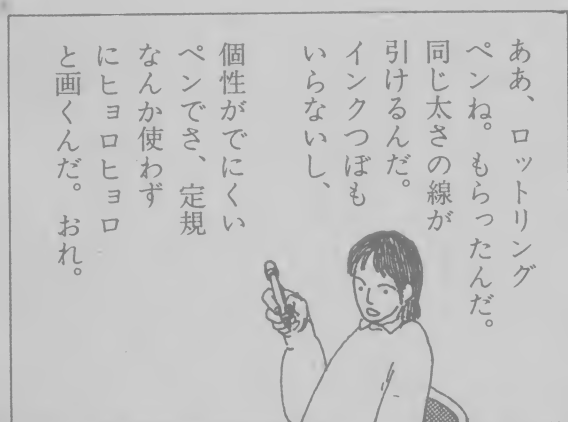 ああ、ロットリング
ペンね。もらったんだ。
同じ太さの線が
引けるんだ。
インクつぼも
いらないし、
個性がでにくい
ペンでさ、定規
なんか使わず
にヒョロヒョロ
と画くんだ。おれ。